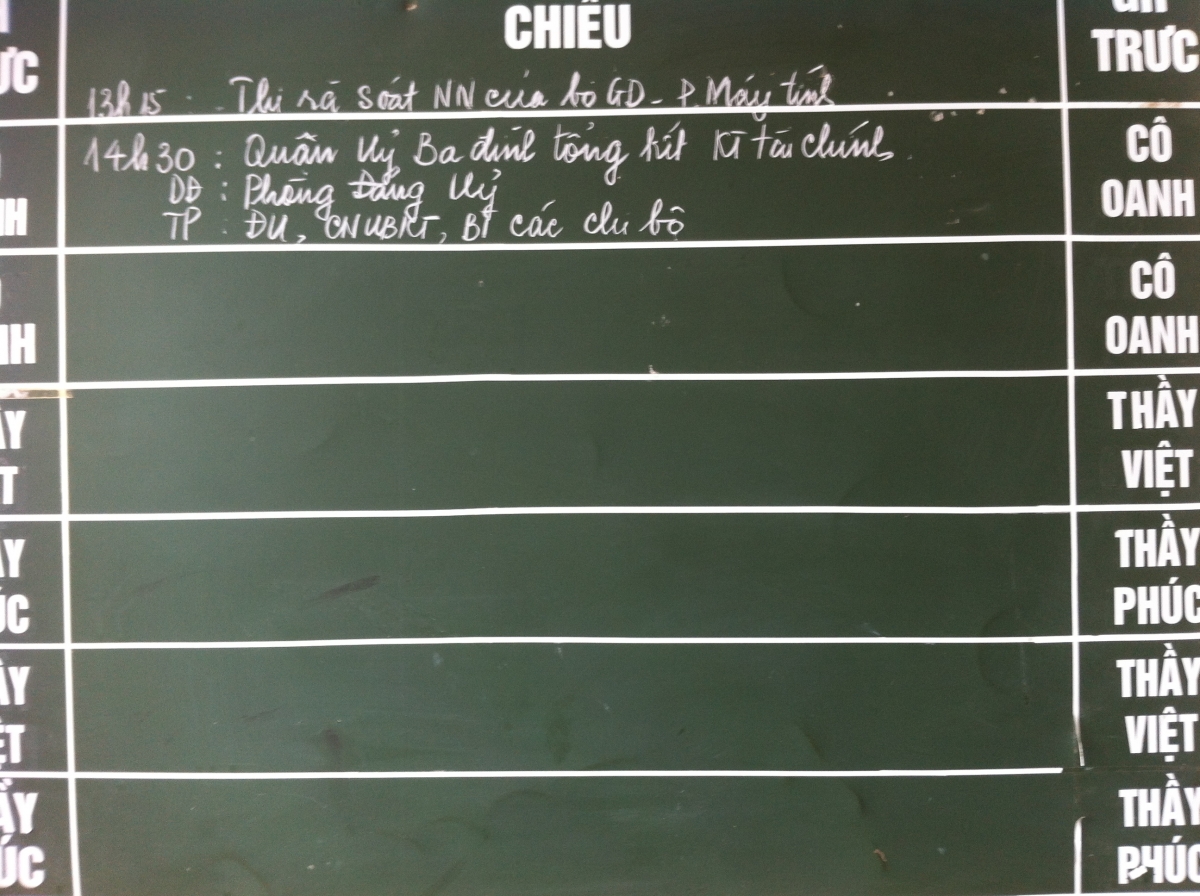 CHIỀU
TRỰC
13h15 : Thi rà soát NN của bộ GD - P. Máy tính
14h30 : Quận Uỷ Ba đình tổng kết KT tài chính
DĐ : Phòng Đảng Uỷ
TP : ĐU, CNUBKT, BT các chi bộ
CÔ
OANH
CÔ
OANH
THẦY
VIỆT
THẦY
PHÚC
THẦY
VIỆT
THẦY
PHÚC